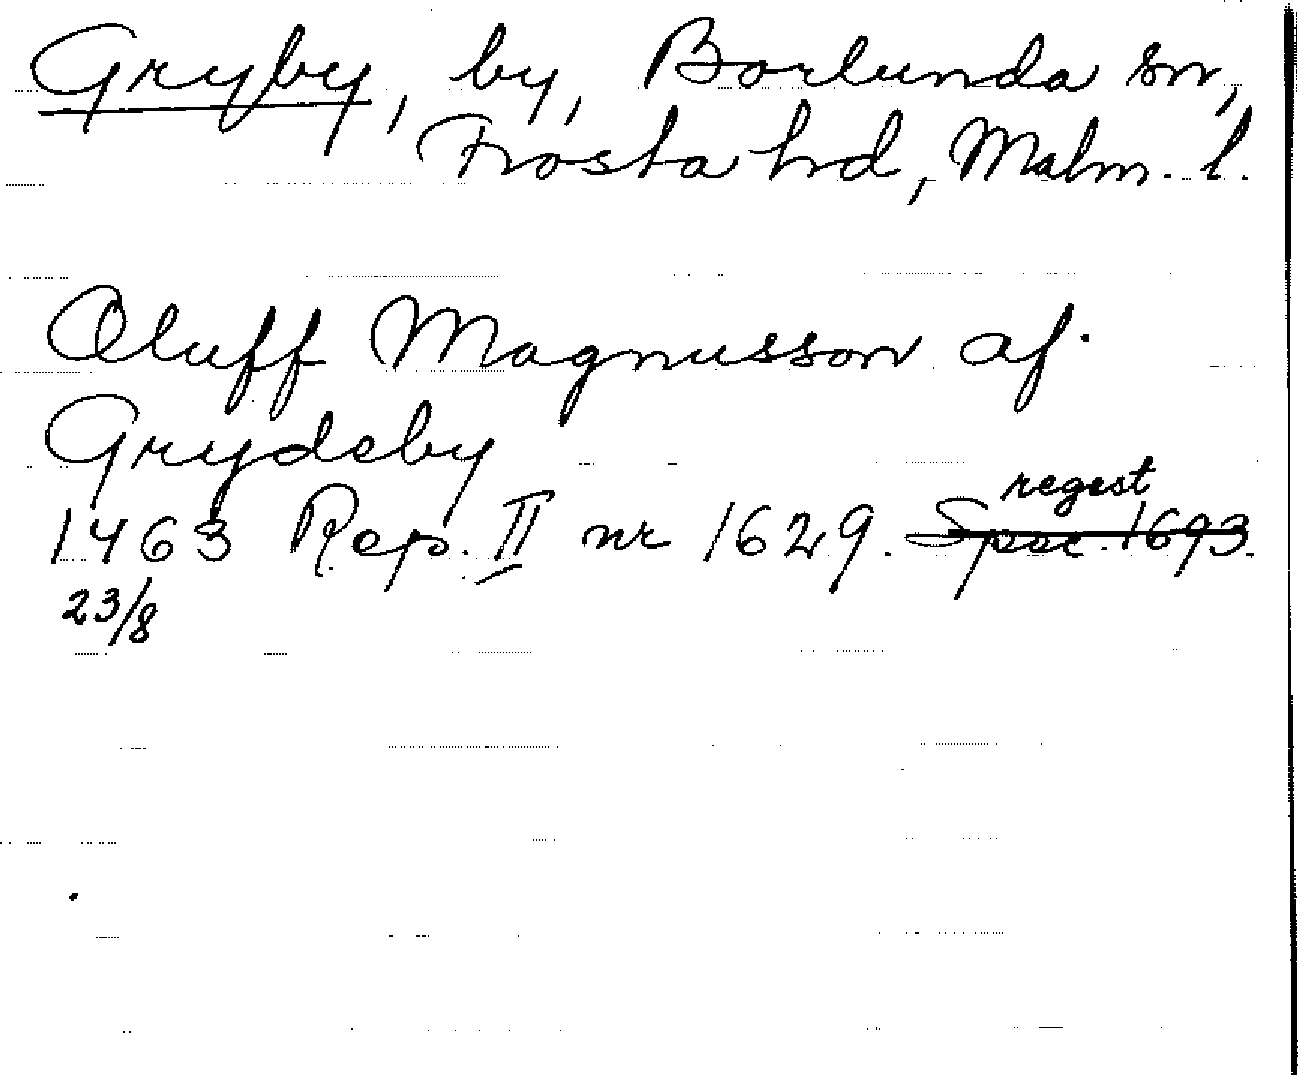 Gryby, by, Borlunda sn,
Frosta hd, Malm. l.
Oluff Magnusson af
Grydeby
regest
1463 Rep. II nr 1629. 1693.
23/8